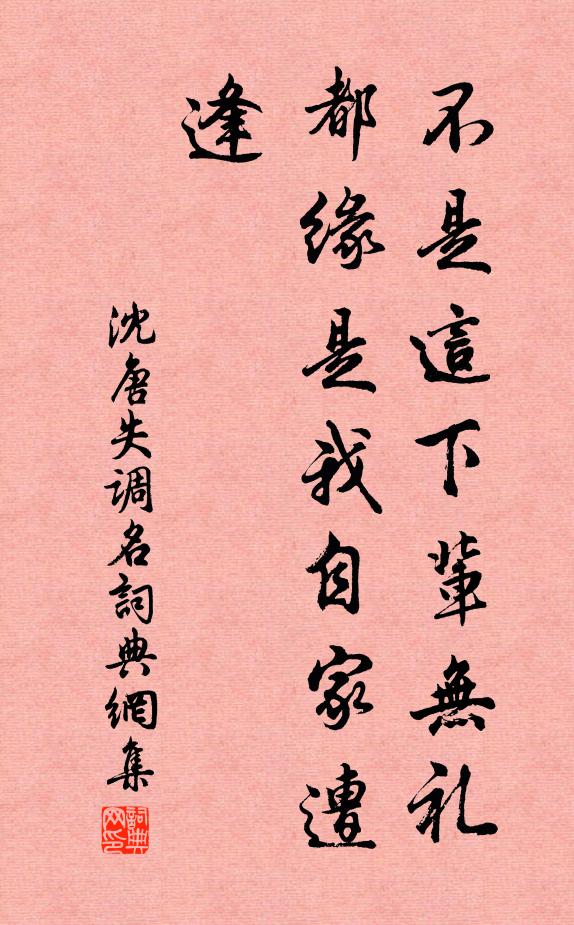 不是這下輩無礼
都缘是我自家遭
逢
沈唐失调名詞典網集
詞典网印